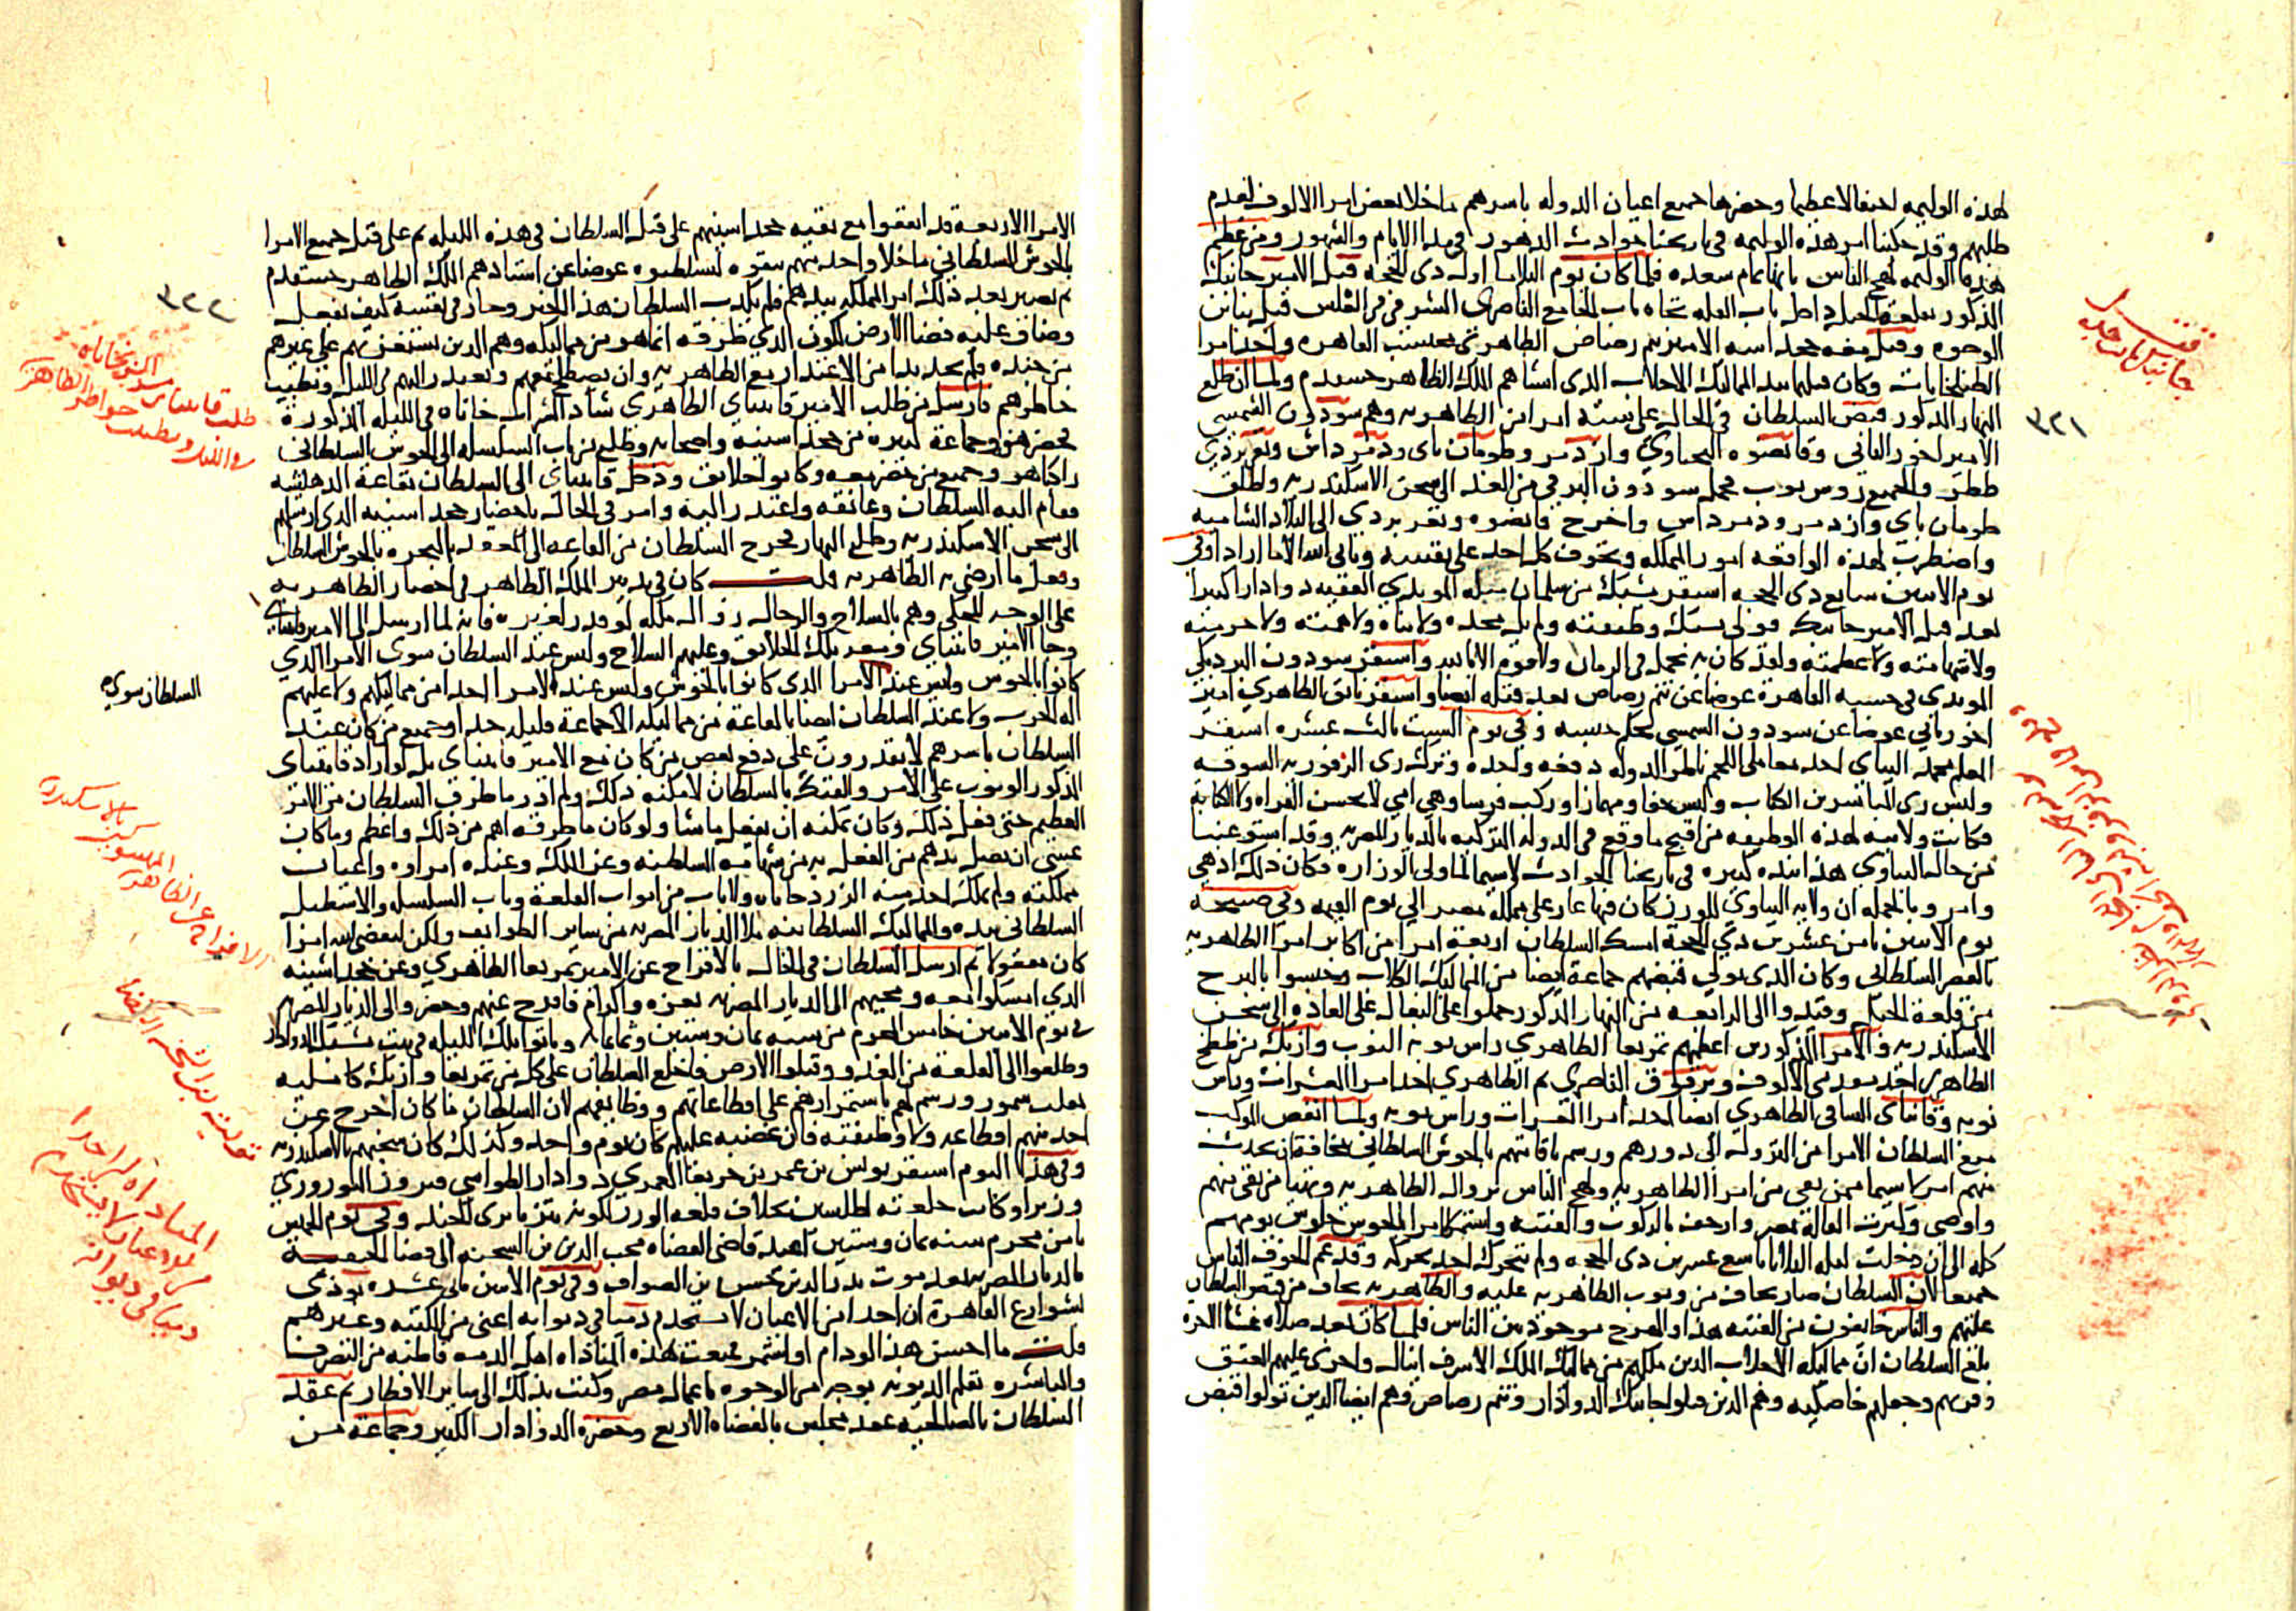 لهذه الوليمه احتفالا عظيما وحضرها جميع اعيان الدوله باسرهم ماخلا بعض امرا الالوف لعدم
طلبهم وقد حكينا امر هذه الوليمه في تاريخنا حوادث الدهور في مدا الايام والشهور ومن عظم
هذه الوليمه لهج الناس بانها تمام سعده فلما كان يوم الثلاثا اول ذي الحجه قتل الامير جانبك
المذكور بقلعة الجبل داخل باب القله تجاه باب الجامع الناصري الشرقي في الغلس
الوجوه وقتل معه خجداشه الامير تنم رصاص الظاهري محتسب القاهره واحد امرا
الطبلخانات وكان قتلهما بيد المماليك الاجلاب الذي انشاهم الملك الظاهر خشقدم ولما ان طلع
النهار المذكور قبض السلطان في الحال على ستة امرا من الظاهريه وهم سودون الشمسي
الامير اخور الثاني وقانصوه اليحياوي وازدمر وطومان باي ودمرداش وتغري بردي
ططر والجميع روس نوب فحمل سودون البرقي من الغد الى سجن الاسكندريه واطلق
طومان باي وازدمر ودمرداش واخرج قانصوه وتغري بردي الى البلاد الشاميه
واضطربت لهذه الواقعه امور المملكه وتخوف كل احد على نفسه ويابى الله الا ما اراد وفي
يوم الاثنين سابع ذي الحجه استقر يشبك من سلمان شاه المويدي الفقيه دوادارا كبيرا
بعد قتل الامير جانبك فولي يشبك وظيفته ولم يل مجده ولا ثناه ولا همته ولا حرمته
ولا شهامته ولا عظمته ولقد كان به تجمل في الزمان ولا قوه الا بالله واستقر سودون البردبكي
المويدي في حسبه القاهرة عوضا عن تنم رصاص بعد قتله ايضا واستقر نانق الظاهري امير
اخور ثاني عوضا عن سودون الشمسي بحكم حبسه وفي يوم السبت ثالث عشره استقر
المعلم محمد البباي احد معاملي اللحم ناظر الدوله دفعه واحده وترك زي الزفوريه السوقه
ولبس زي المباشرين الكتاب ولبس خفا ومهمازا وركب فرسا وهي امي لا يحسن القراه ولا الكتابه
فكانت ولايته لهذه الوظيفه من اقبح ما وقع في الدوله التركيه بالديار المصريه وقد استوعبنا
من حال البباوي هذا نبذه كبيره في تاريخنا الحوادث لاسيما لما ولي الوزاره فكان ذلك ادهى
وامر وبالجمله ان ولايه البباوي للوزر كان فيها عار على مملكه مصر الى يوم القيمه وفي صبيحه
يوم الاثنين ثامن عشرين ذي الحجه امسك السلطان اربعة امرا من اكابر امرا الظاهريه
بالقصر السلطاني وكان الذي تولى قبضهم جماعة ايضا من المماليك الاجلاب وحبسوا بالبرج
من قلعة الجبل وقيدوا الى الرابعه من النهار المذكور حملوا على البغال على العاده الى سجن
الاسكندريه والامرا المذكورين اعظمهم تمربغا الظاهري راس نوبه النوب وازبك من ططخ
الظاهري احد مقدمي الالوف وبرقوق الناصري ثم الظاهري احد امرا العشرات وراس
نوبه وقانباي الساقي الظاهري ايضا احد امرا العشرات وراس نوبه ولما انفض الموكب
منع السلطان الامرا من النزول الى دورهم ورسم باقامتهم بالحوش السلطاني مخافة ان يحدث
منهم امر لاسيما ممن بقي من امرا الظاهريه ولهج الناس بزوال الظاهريه وتهيا من بقي منهم
واوصى وكثرت القاله بمصر وارجف بالركوب والفتنه واستمر الامرا بالحوش جلوس يومهم
كله الى ان دخلت ليله الثلاثا تاسع عشرين ذي الحجه ولم يتحرك احد بحركه وقد عم الخوف الناس
جميعا لان السلطان صار يخاف من وثوب الظاهريه عليه والظاهريه تخاف من قبض السلطان
عليهم والناس خايفون من الفتنه هذا والهرج موجود بين الناس فلما كان بعد صلاه عشا الاخره
بلغ السلطان ان مماليكه الاجلاب الذين ملكهم من مماليك الملك الاشرف اينال واجرى عليهم العتق
وقربهم وجعلهم خاصكيه وهم الذين قتلوا جانبك الدوادار وتنم رصاص وهم ايضا الذين تولوا قبض
قتل
جانبك نائب جده
٣٢١
الامرا الاربعة قد اتفقوا مع بقيه خجداشيتهم على قتل السلطان في هذه الليله ثم على قتل جميع الامرا
بالحوش السلطاني ماخلا واحد منهم يبقوه ليسلطنوه عوضا عن استاذهم الملك الظاهر خشقدم
ثم يصير بعد ذلك امر المملكه بيدهم فلم يكذب السلطان هذا الخبر وحار في نفسه كيف يفعل
وضاق عليه فضا الارض لكون الذي طرقه انما هو من مماليكه وهم الذين يستعز بهم على غيرهم
من جنده فلم يجد بدا من الاعتذار مع الظاهريه وان يصطلح معهم ويعتذر اليهم في الليل ويطيب
خاطرهم فارسل من طلب الامير قايتباي الظاهري شاد الشراب خاناه في الليله المذكورة
فحضر هو وجماعة كبيره من خجداشيته واصحابه وطلع من باب السلسله الى الحوش السلطاني
راكبا هو وجميع من حضر معه وكانوا خلائق ودخل قايتباي الى السلطان بقاعة الدهيشه
فقام اليه السلطان وعانقه واعتذر اليه وامر في الحال باحضار خجداشيته الذي ارسلهم
الى سجن الاسكندريه وطلع النهار فخرج السلطان من القاعه الى القعود بالبحره بالحوش السلطاني
وفعل ما ارضى به الظاهريه قلت كان في تدبير الملك الظاهر في احضار الظاهريه
على الوجه المحكي وهم بالسلاح والرجال زوال ملكه لو قدر لغيره فانه لما ارسل الى الامير قايتباي
وجا الامير قايتباي ومعه تلك الخلائق وعليهم السلاح وليس عند السلطان سوى الامرا الذي
كانوا بالحوش وليس عند الامرا الذي كانوا بالحوش وليس عند الامرا احد من مماليكهم ولا عليهم
اله الحرب ولا عند السلطان ايضا بالقاعة من مماليكه الا جماعة قليل جدا وجميع من كان عند
السلطان باسرهم لا يقدرون على دفع بعض من كان مع الامير قايتباي بل لو اراد قايتباي
المذكور الوثوب على الامر والفتك بالسلطان لامكنه ذلك ولم ادر ما طرق السلطان من الامر
العظيم حتى فعل ذلك وكان يمكنه ان يفعل ما شا ولو كان ما طرقه اهم من ذلك واعظم وما كان
عسى ان تصل يدهم من الفعل به من شهامه السلطنه وعز الملك وعنده امراوه واعيان
مملكته ولم يملك احد منه الزردخاناه ولا باب من ابواب القلعة وباب السلسله والاسطبل
السلطاني بيده والمماليك السلطانيه ملا الديار المصريه من ساير الطوايف ولكن ليقضي الله امرا
كان مفعولا ثم ارسل السلطان في الحال بالافراج عن الامير تمربغا الظاهري وعن خجداشيته
الذي امسكوا معه ومجيهم الى الديار المصريه بعزه واكرام فافرج عنهم وحضروا الى الديار المصريه
في يوم الاثنين خامس المحرم من سنه ثمان وستين وثمانمايه وباتوا تلك الليله في بيت يشبك الدوادار
وطلعوا الى القلعة من الغد وقبلوا الارض فاخلع السلطان على كل من تمربغا وازبك كامليه
بقلب سمور ورسم لهم باستمرارهم على اقطاعاتهم ووظايفهم لان السلطان ما كان اخرج عن
احد منهم اقطاعه ولا وظيفته فان غضبه عليهم كان يوم واحد وكذلك كان سجنهم بالاسكندريه
وفي هذا اليوم استقر يونس بن عمر بن جربغا العمري دوادار الطواشي فيروز النوروزي
وزيرا وكانت خلعته اطلسين بخلاف خلعه الوزر لكونه يتزيا بزي الجند وفي يوم الخميس
ثامن محرم سنه ثمان وستين اعيد قاضي القضاه محب الدين بن الشحنه الى قضا الحنفيه
بالديار المصريه بعد موت بدر الدين حسن بن الصواف وفي يوم الاثنين ثاني عشره نودي
بشوارع القاهرة ان احدا من الاعيان لا يستخدم ذميا في ديوانه اعني من الكتبه وغيرهم
قلت ما احسن هذا لو دام او استمر فمنعت هذه المناداه اهل الذمه قاطبه من التصرف
والمباشره بقلم الديونه بوجه من الوجوه باعمال مصر وكتبت بذلك الى ساير الاقطار ثم عقد
السلطان بالصالحيه عقد مجلس بالقضاه الاربع وحضره الدوادار الكبير وجماعة من
٣٢٢
السلطان سوى
الافراج عن الظاهريه المسجونين بالاسكندريه
توليه ابن الشحنه القضا
المناداه ان احدا
من الاعيان لا يستخدم
ذميا في ديوانه